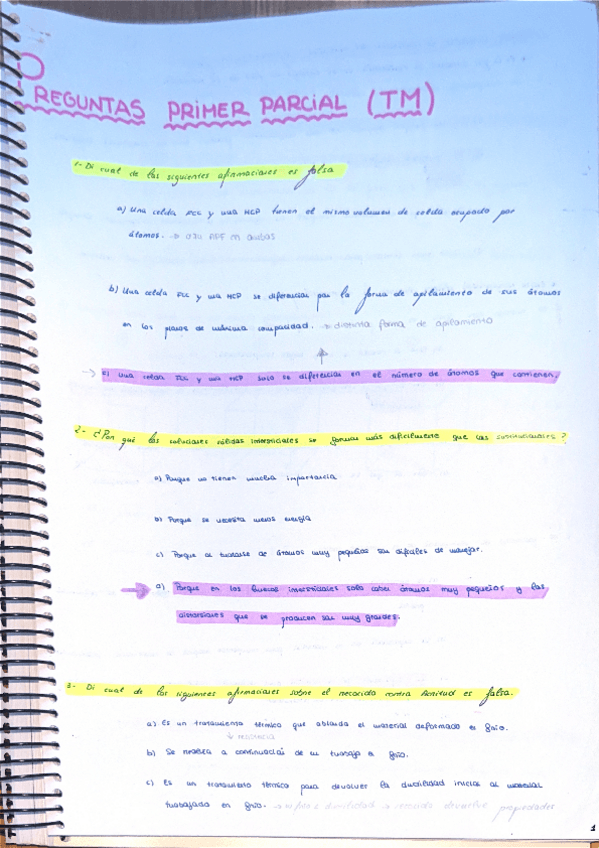 PREGUNTAS PRIMER PARCIAL (TM)
1- Di cual de las siguientes afirmaciones es falsa
a) Una celda FCC y una HCP tienen el mismo volumen de celda ocupado por
átomos. → 0'74 APF en ambas
b) Una celda FCC y una HCP se diferencian por la forma de apilamiento de sus átomos
en los planos de máxima compacidad. → distinta forma de apilamiento
→ c) Una celda FCC y una HCP solo se diferencian en el número de átomos que contienen.
2- ¿Por qué las soluciones sólidas intersticiales se forman más dificilmente que las sustitucionales?
a) Porque no tienen mucha importancia
b) Porque se necesita menos energía
c) Porque al tratarse de átomos muy pequeños son difíciles de manejar.
d) Porque en los huecos intersticiales solo caben átomos muy pequeños y las
distorsiones que se producen son muy grandes.
3- Di cual de las siguientes afirmaciones sobre el recocido contra Acritud es falsa.
a) Es un tratamiento térmico que ablanda el material deformado en frío.
↓ resistencia
b) Se realiza a continuación de un trabajo en frío.
c) Es un tratamiento térmico para devolver la ductilidad inicial al material
trabajado en frío. → ductilidad → recocido devuelve propiedades
1